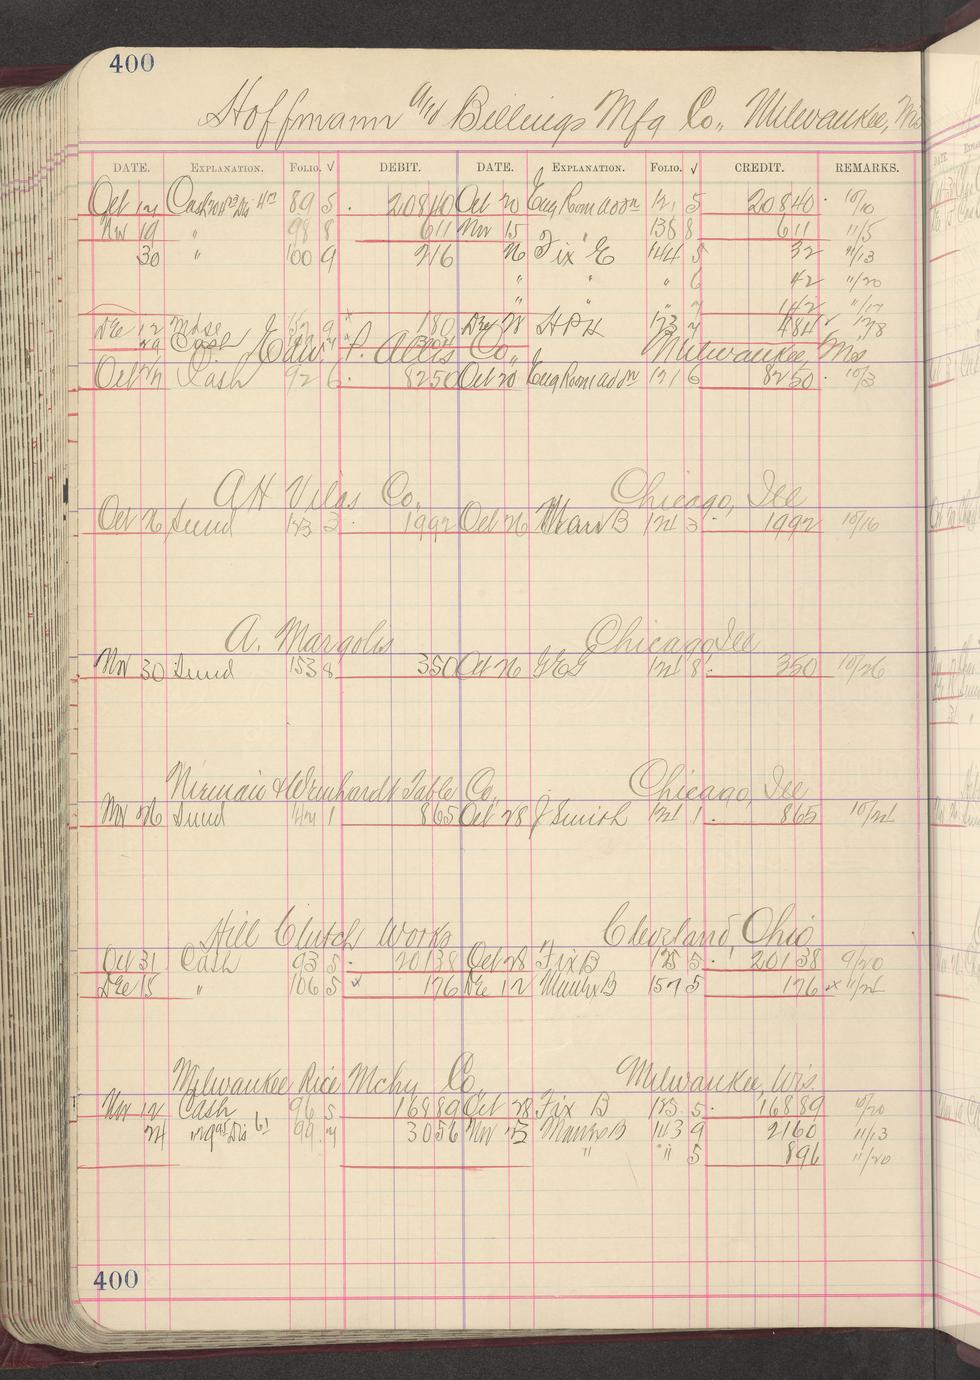 400
Hoffmann and Billings Mfg Co., Milwaukee, Wis
DATE. EXPLANATION. FOLIO. √ DEBIT. DATE. EXPLANATION. FOLIO. √ CREDIT. REMARKS.
Oct 12 Cash 89 5 208 40 Oct 20 Eug Room addn 121 5 208 40 10/10
Nov 19 " 98 8 6 11 Nov 15 " 138 8 6 11 11/5
30 " 100 9 2 16 26 Fix E 144 5 32 11/13
" " " 6 42 11/20
" " " 7 1 42 11/17
Dec 12 Mdse 9 1 80 Dec 28 H P H 173 7 4 84
29 Cash
Edw. P. Allis Co., Milwaukee, Wis
Oct 27 Cash 92 6 82 50 Oct 20 Eug Room addn 121 6 82 50 10/3
A H Vilas Co. Chicago, Ill
Oct 26 Sund 123 3 19 92 Oct 26 B 121 3 19 92 10/16
A. Margolis Chicago Ill
Nov 30 Sund 153 8 3 50 Oct 26 G E G 121 8 3 50 10/26
& Weinhardt Table Co. Chicago, Ill
Nov 26 Sund 142 1 8 65 Oct 28 J Smith 121 1 8 65 10/21
Hill Clutch Works Cleveland, Ohio
Oct 31 Cash 93 5 201 38 Oct 28 Fix B 125 5 201 38 9/20
Dec 15 " 106 5 x 1 76 Dec 12 B 157 5 1 76 x 11/21
Milwaukee Rice Mchy Co. Milwaukee, Wis.
Nov 12 Cash 96 5 168 89 Oct 28 Fix B 125 5 168 89 10/20
24 " Dis 61 99 7 30 56 Nov 25 B 143 9 21 60 11/13
" " 5 8 96 11/20
400